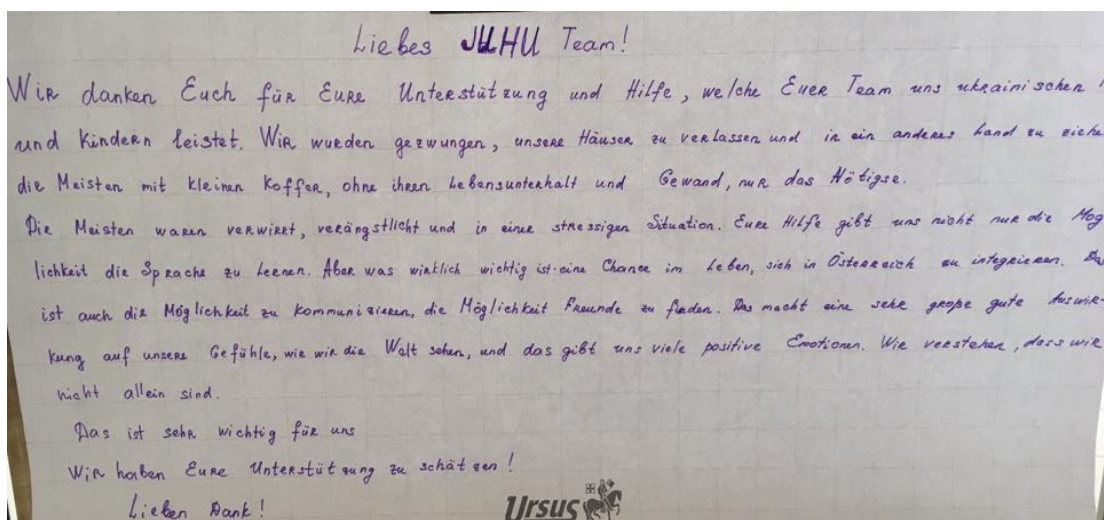 Liebes JUHU Team!
Wir danken Euch für Eure Unterstützung und Hilfe, welche Euer Team uns ukrainischen
und Kindern leistet. Wir wurden gezwungen, unsere Häuser zu verlassen und in ein anderes Land zu ziehe
die Meisten mit kleinen Koffer, ohne ihren Lebensunterhalt und Gewand, nur das Nötigse.
Die Meisten waren verwirrt, verängstlicht und in einer stressigen Situation. Eure Hilfe gibt uns nicht nur die Mog
lichkeit die Sprache zu lernen. Aber was wirklich wichtig ist-eine Chance im Leben, sich in Österreich zu integrieren. Da
ist auch die Möglichkeit zu kommunizieren, die Möglichkeit Freunde zu finden. Das macht eine sehr große gute Auswir-
kung auf unsere Gefühle, wie wir die Welt sehen, und das gibt uns viele positive Emotionen. Wir verstehen, dass wir
nicht allein sind.
Das ist sehr wichtig für uns
Wir haben Eure Unterstützung zu schätzen!
Lieben Dank!
Ursus